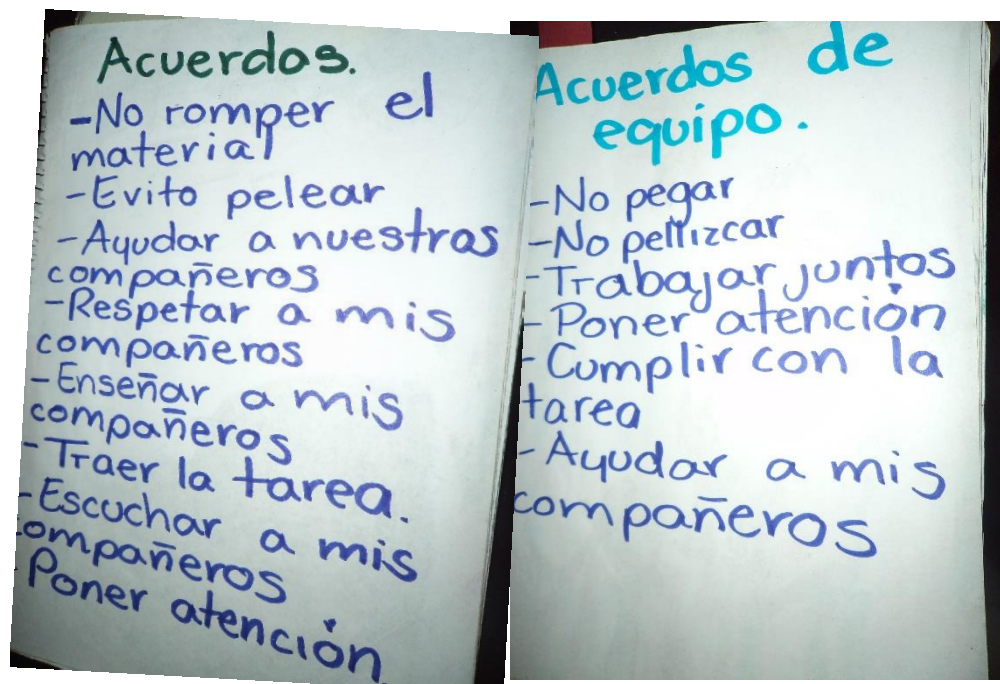 Acuerdos.
-No romper el
material
-Evito pelear
-Ayudar a nuestros
compañeros
-Respetar a mis
compañeros
-Enseñar a mis
compañeros
-Traer la tarea.
-Escuchar a mis
compañeros
-Poner atención
Acuerdos de
equipo.
-No pegar
-No pellizcar
-Trabajar juntos
-Poner atención
-Cumplir con la
tarea
-Ayudar a mis
compañeros